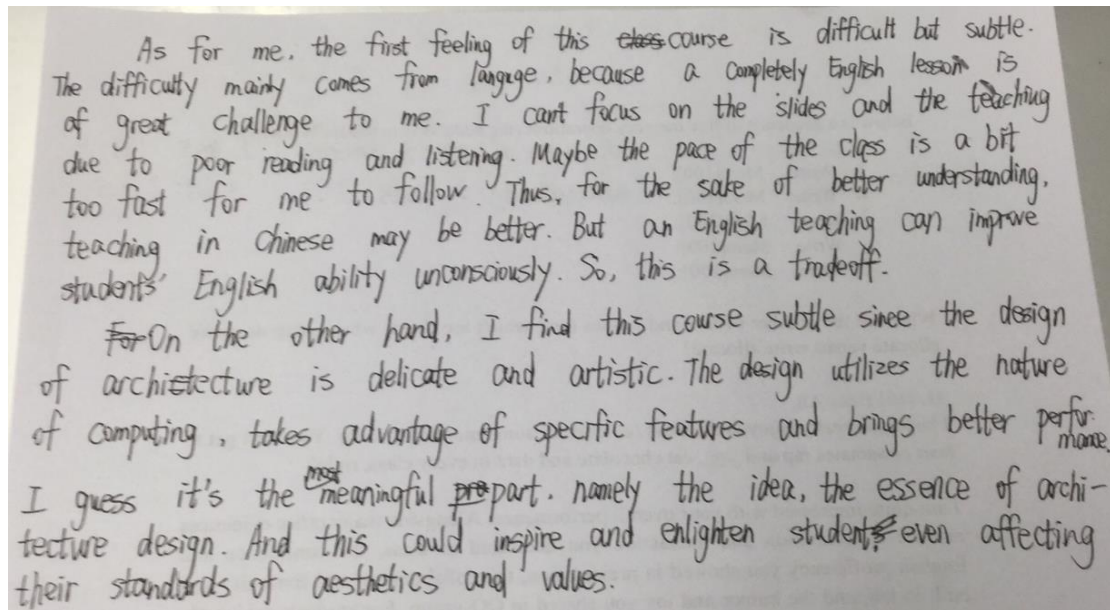 As for me, the first feeling of this course is difficult but subtle.
The difficulty mainly comes from languge, because a completely English lesson is
of great challenge to me. I can't focus on the slides and the teaching
due to poor reading and listening. Maybe the pace of the class is a bit
too fast for me to follow. Thus, for the sake of better understanding,
teaching in Chinese may be better. But an English teaching can improve
students' English ability unconsciously. So, this is a tradeoff.
On the other hand, I find this course subtle since the design
of architecture is delicate and artistic. The design utilizes the nature
of computing, takes advantage of specific features and brings better perfor-
mance.
I guess it's the most meaningful part, namely the idea, the essence of archi-
tecture design. And this could inspire and enlighten student, even affecting
their standards of aesthetics and values.